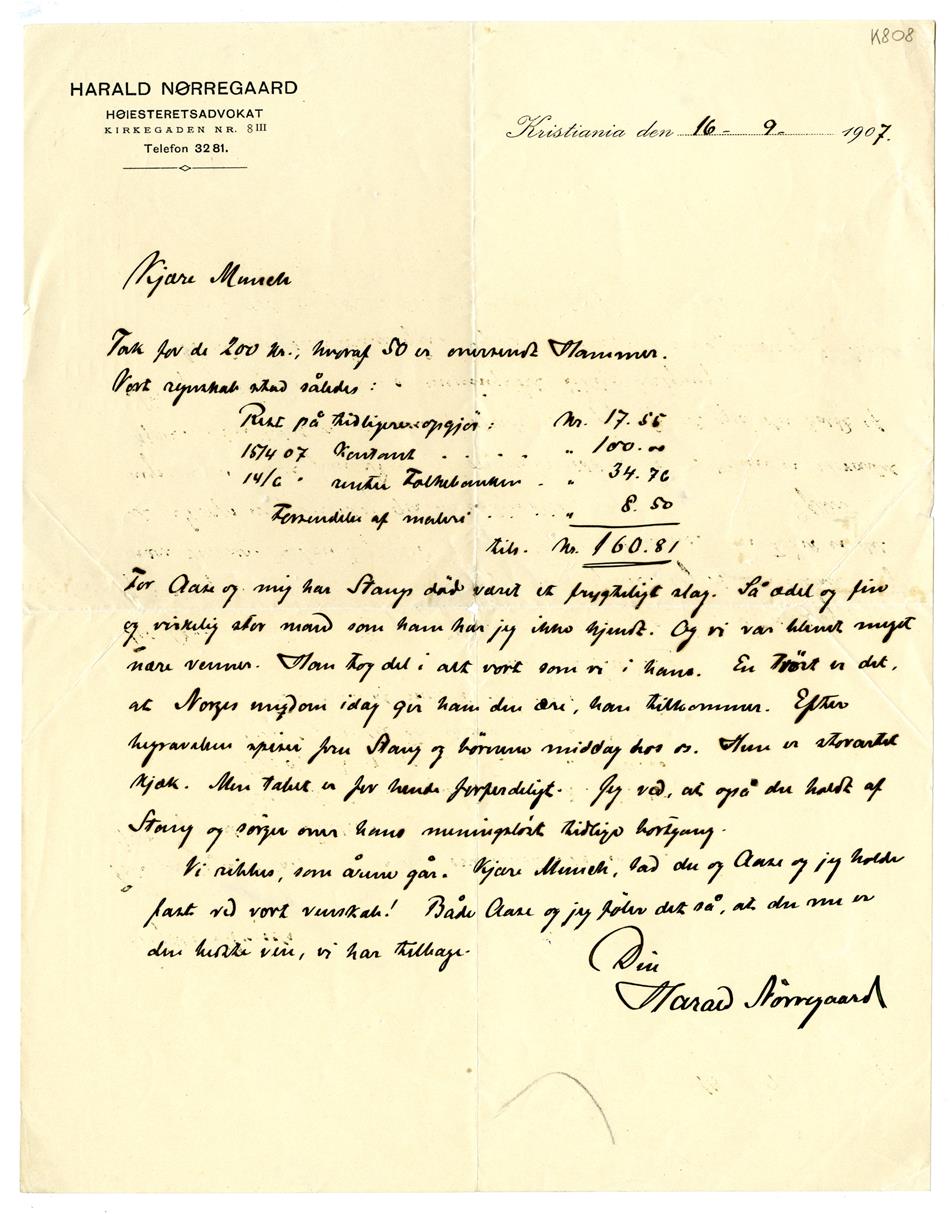 K808
HARALD NØRREGAARD
HØIESTERETSADVOKAT
KIRKEGADEN NR. 8 III
Telefon 3281.
Kristiania den 16 - 9 - 1907.
Kjære Munch
Tak for de 200 kr., hvoraf 50 er oversendt Hammer.
Vort regnskab stod således :
Rest på tidligere opgjör : Kr. 17.55
15/4 07 Kontant . . . . . „ 100.00
14/6 " renter Folkebanken . „ 34.76
Forsendelse af maleri . . . . „ 8.50
tils. Kr. 160.81
For Aase og mig har Stangs död været et frygteligt slag. Så ædel og fin
og virkelig stor mand som ham har jeg ikke kjendt. Og vi var blevet meget
nære venner. Han tog del i alt vort som vi i hans. En tröst er det,
at Norges ungdom idag gir ham den ære, han tilkommer. Efter
begravelsen spiser fru Stang og börnene middag hos os. Hun er storartet
kjæk. Men tabet er for hende forferdeligt. Jeg ved, at også du holdt af
Stang og sörger over hans meningslöst tidlige bortgang.
Vi rikkes, som årene går. Kjære Munch, lad du og Aase og jeg holde
fast ved vort venskab! Både Aase og jeg föler det så, at du nu er
den bedste ven, vi har tilbage.
Din
Harald Nörregaard